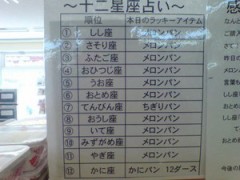 ～十二星座占い～
順位 本日のラッキーアイテム
① しし座 メロンパン
② さそり座 メロンパン
③ ふたご座 メロンパン
④ おひつじ座 メロンパン
⑤ うお座 メロンパン
⑥ おとめ座 メロンパン
⑦ てんびん座 ちぎりパン
⑧ おうし座 メロンパン
⑨ いて座 メロンパン
⑩ みずがめ座 メロンパン
⑪ やぎ座 メロンパン
⑫ かに座 かにパン 12ダース
感